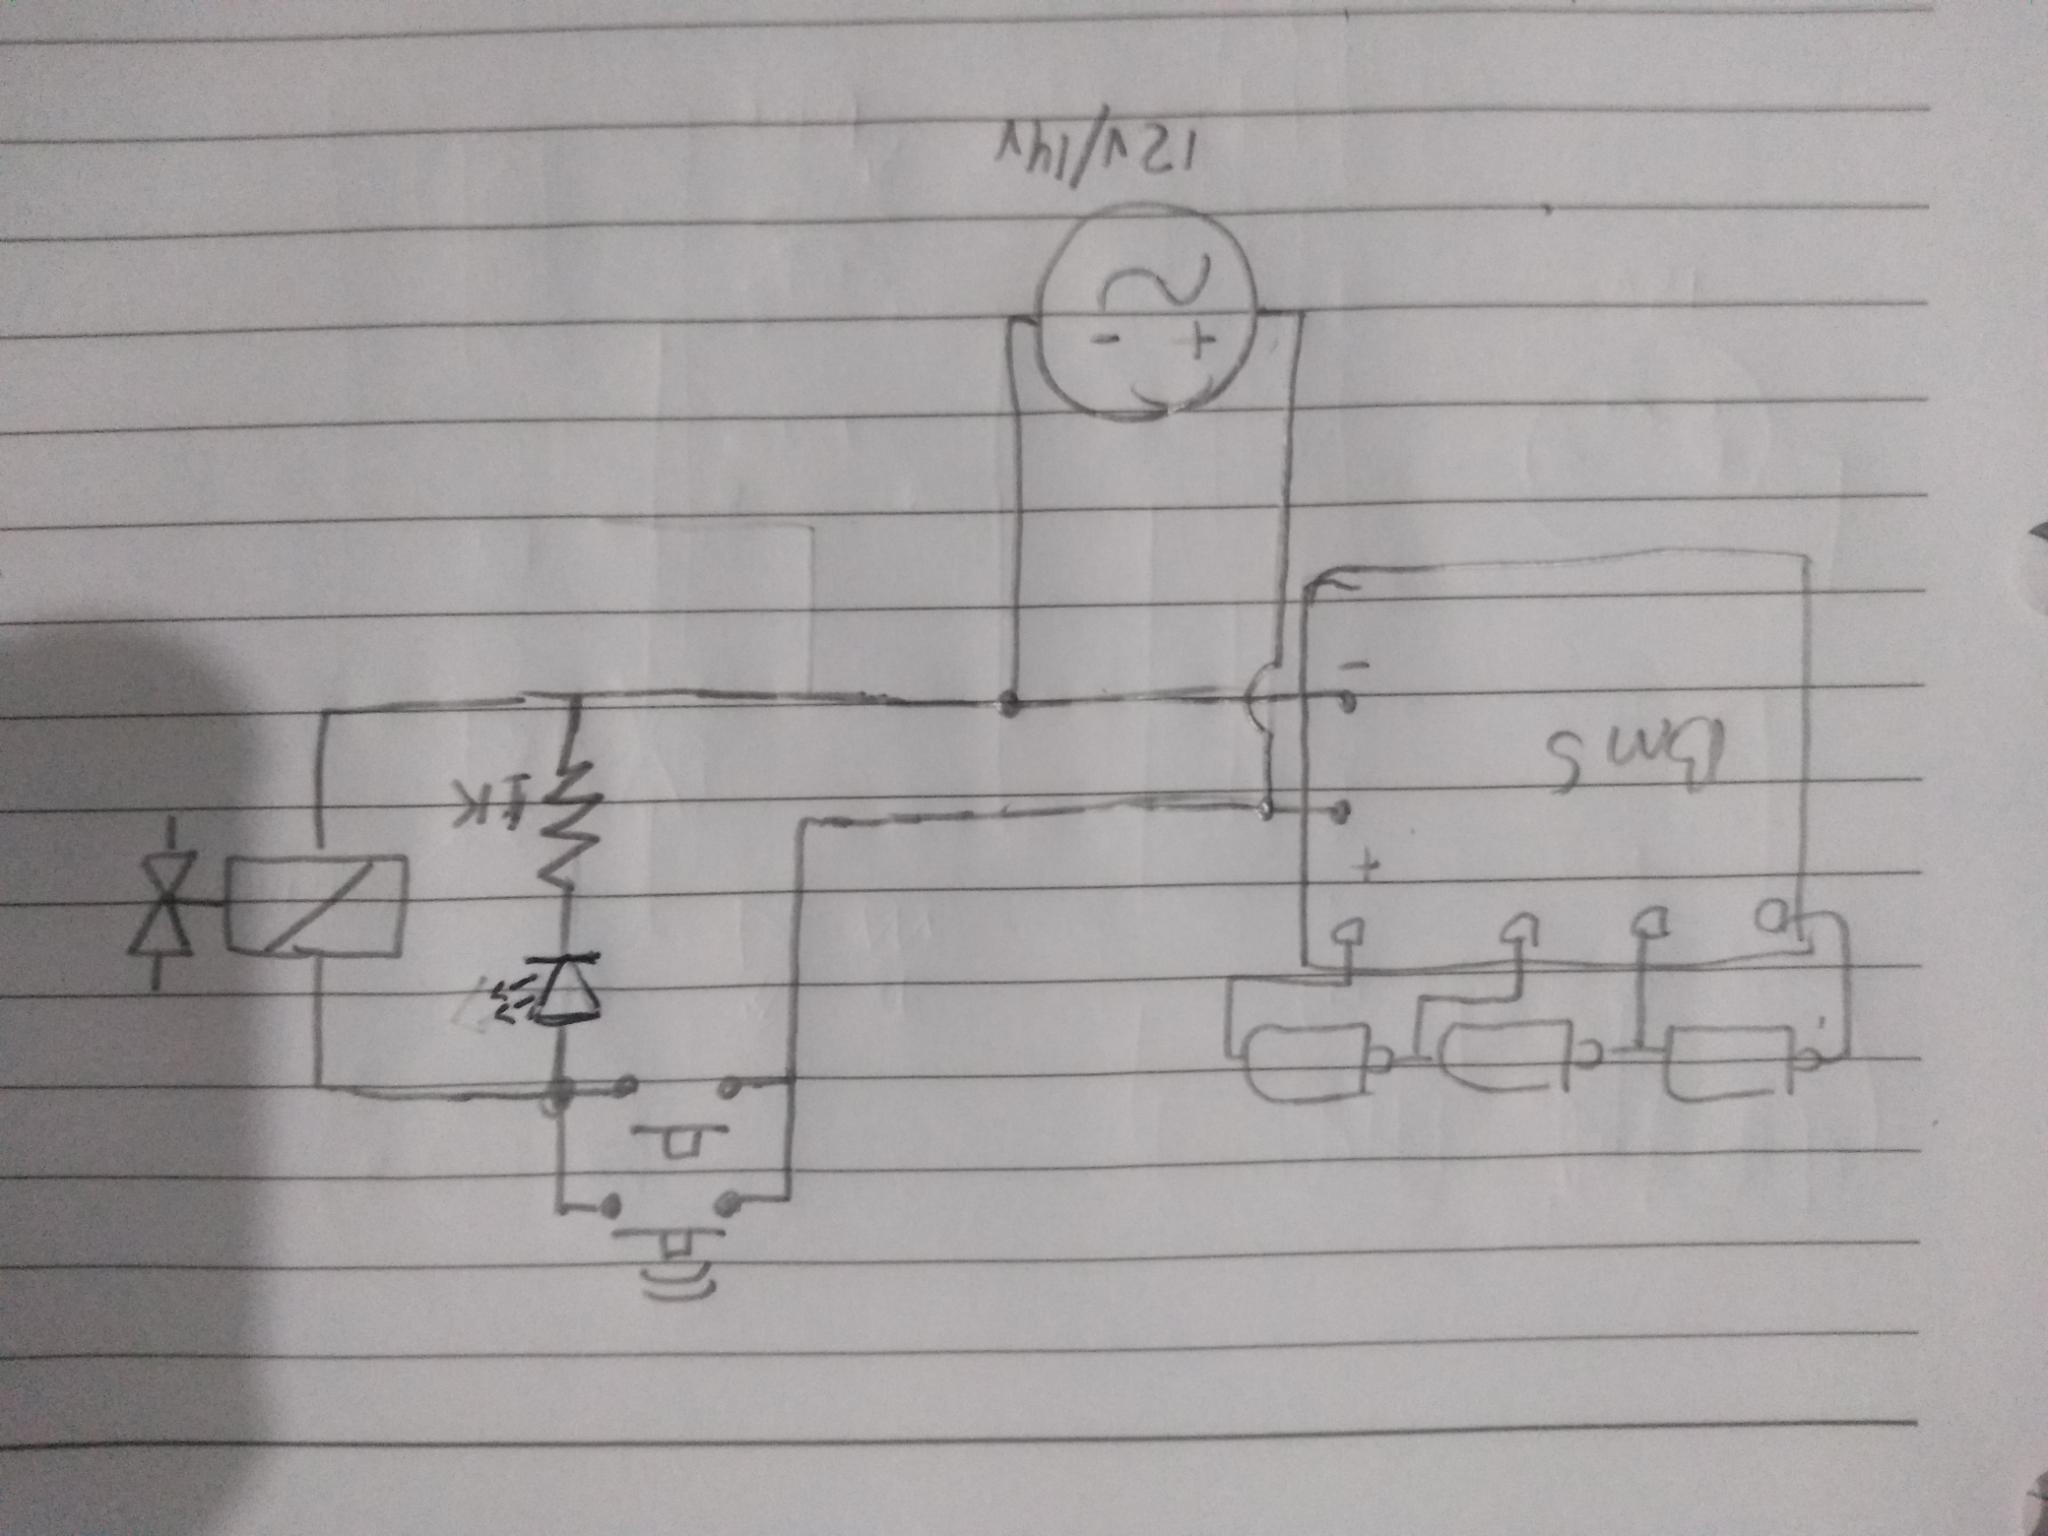 12V/14V
- +
-
BMS
1K
+